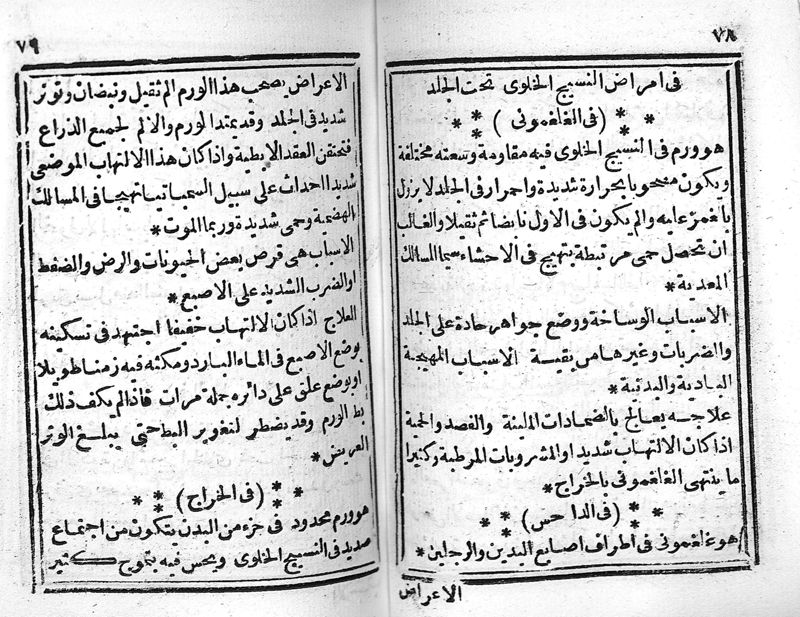 ٧٨
فى امراض النسيج الخلوى تحت الجلد
* * (فى الغلغمونى) * *
هو ورم فى النسيج الخلوى فيه مقاومة وسعته مختلفة
ويكون مصحوبا بحرارة شديدة واحمرار فى الجلد لا يزول
بالغمز عليه والم يكون فى الاول نابضا ثم ثقيلا والغالب
ان تحصل حمى مرتبطة بتهيج فى الاحشاء سيما المسالك
المعدية *
الاسباب الوساخة ووضع جواهر حادة على الجلد
والضربات وغيرها من بقيسة الاسباب المهيجية
البادية والبدنية *
علاجه يعالج بالضمادات الملينة والفصد والحمية
اذا كان الالتهاب شديدا والمشروبات المرطبة وكثيرا
ما ينتهى الغلغمونى بالخراج *
* * (فى الداحس) * *
هو غلغمونى فى اطراف اصابع اليدين والرجلين *
الاعراض
٧٩
الاعراض يصحب هذا الورم الم ثقيل ونبضان وتوتر
شديد فى الجلد وقد يمتد الورم والالم لجميع الذراع
فتحتقن العقد الابطية واذا كان هذا الالتهاب الموضعى
شديدا احدث على سبيل السمباتيا تهيجا فى المسالك
الهضمية وحمى شديدة وربما الموت *
الاسباب هى قرص بعض الحيونات والرض والضغط
او الضرب الشديد على الاصبع *
العلاج اذا كان الالتهاب خفيفا اجتهد فى تسكينه
بوضع الاصبع فى الماء البارد ومكثه فيه زمنا طويلا
او بوضع علق على دائره جملة مرات فاذا لم يكف ذلك
بط الورم وقد يضطر لتغوير البط حتى يبلغ الوتر
العريض *
* * (فى الخراج) * *
هو ورم محدود فى جزء من البدن يتكون من اجتماع
صديد فى النسيج الخلوى ويحس فيه بتموج كثير